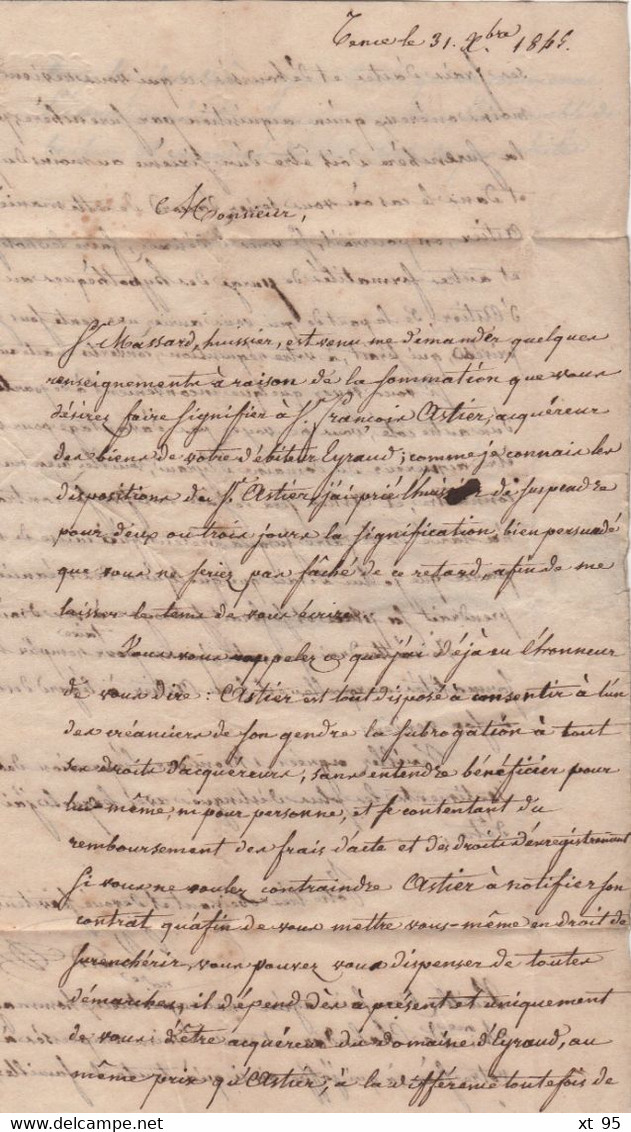 Tence le 31. Xbre 1845.
Monsieur,
Sr. Massard, huissier, est venu me démander quelques
renseignements à raison de la sommation que vous
désirez faire signifier à Sr. françois Astier, acquéreur
des biens de votre débiteur Eyraud; comme je connais les
dispositions de Sr. Astier, j'ai prié l'huissier de suspendre
pour deux ou trois jours la signification, bien persuadé
que vous ne seriez pas fâché de ce retard, afin de me
laisser le tems de vous écrire.
Vous vous rappelez ce que j'ai déjà eu l'honneur
de vous dire: Astier est tout disposé à consentir à l'un
des créanciers de son gendre la subrogation à tout
ses droits d'acquéreurs, sans entendre bénéficier pour
lui-même, ni pour personne, et se contentant du
remboursement des frais d'acte et des droits d'enregistrement
Si vous ne voulez contraindre Astier à notifier son
contrat qu'afin de vous mettre vous-même en droit de
surenchérir, vous pouvez vous dispenser de toutes
démarches, il dépend dès à présent et uniquement
de vous d'être acquéreur du domaine d'Eyraud, au
même prix qu'Astier; à la différence toutefois de
xt 95